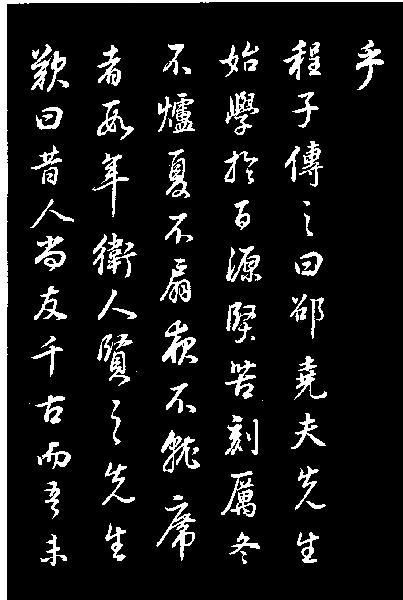 乎
程子傳之曰邵堯夫先生
始學於百源堅苦刻厲冬
不爐夏不扇夜不就席
者數年衛人賢之先生
歎曰昔人尚友千古而吾未